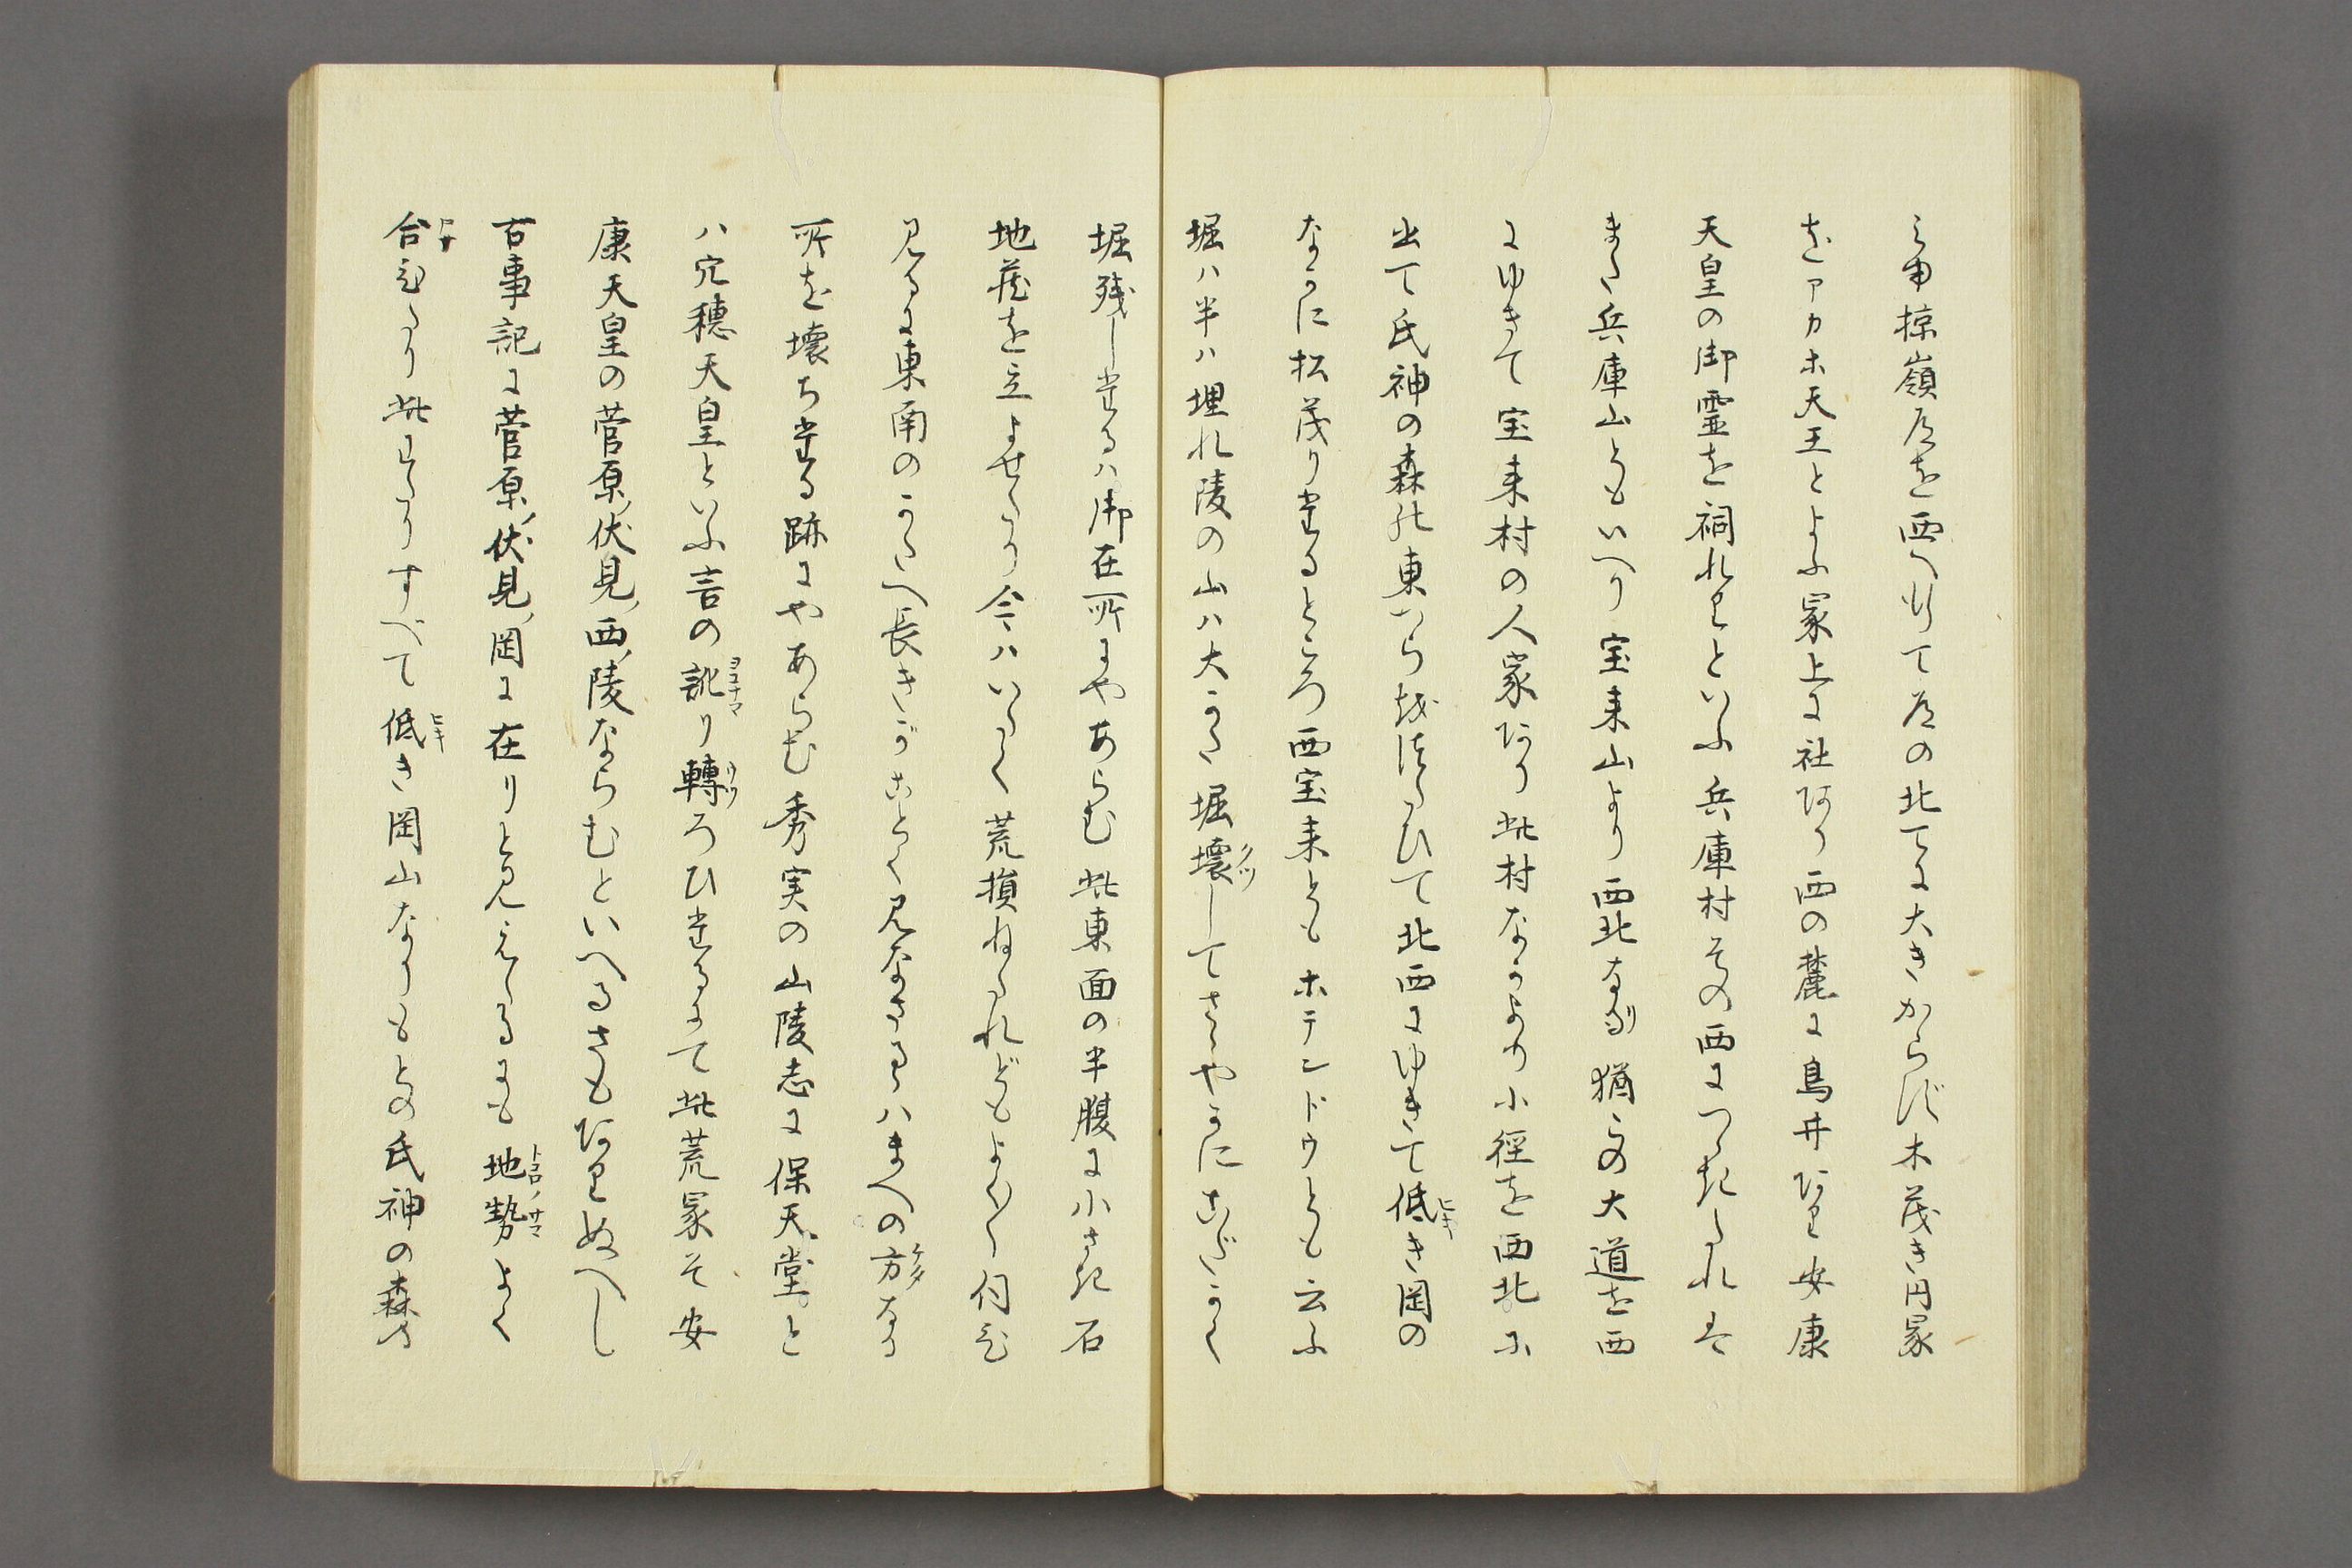 え申椋嶺道を西へ行て道の北てに大きからず木茂き円冢
をアカホ天王とよふ冢上に社あり西の麓に鳥井あり安康
天皇の御霊を祠れりといふ兵庫村その西につゝきたれは
また兵庫山ともいへり宝来山より西北なり猶この大道を西
にゆきて宝来村の人家あり此村なかよりの小径を西北に
出て氏神の森の東つら越伝ひて北西にゆきて低き岡の
なかに松茂りたるところ西宝来ともホテンドウとも云ふ
堀ハ半ハ埋れ陵の山ハ大かた堀壊してさゝやかにこだかく
堀残したるハ御在所にやあらむ此東面の半腹に小さき石
地蔵を立よせたり今ハいたく荒損ねたれどもよくよく伺ひ
見るに東南のかたへ長きがごとく見なさるゝハまへの方なり
所を壊ちたる跡にやあらむ秀実の山陵志に保天堂と
ハ穴穂天皇といふ言の訛り轉ろひたるにて此荒冢そ安
康天皇の菅原伏見西陵ならむといへるさもありぬへし
古事記に菅原ノ伏見ノ岡に在りと見えたるにも地勢よく
合ひたり此わたりすべて低き岡山なりもとの氏神の森の